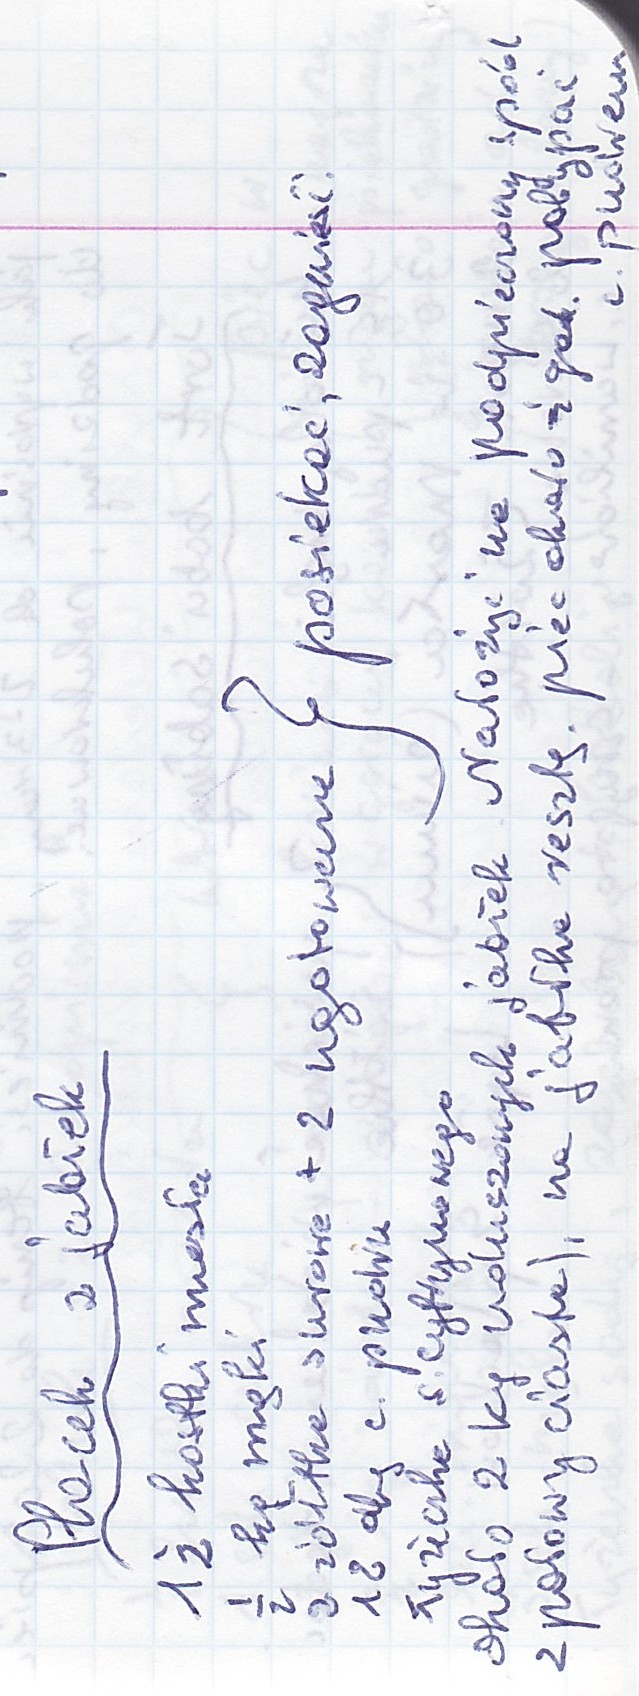 Placek z jabłek
1 ½ kostki masła
½ kg mąki
2 żółtka surowe + 2 ugotowane } posiekać, zagnieść.
18 dkg c. pudru
łyżeczka s. cytrynowego
około 2 kg uduszonych jabłek. Nałożyć na podpieczony spód
z połowy ciasta), na jabłka resztę. piec około ½ godz. posypać
c. pudrem